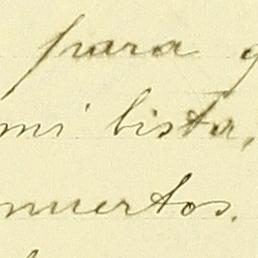 para
mi bista,
muertos.